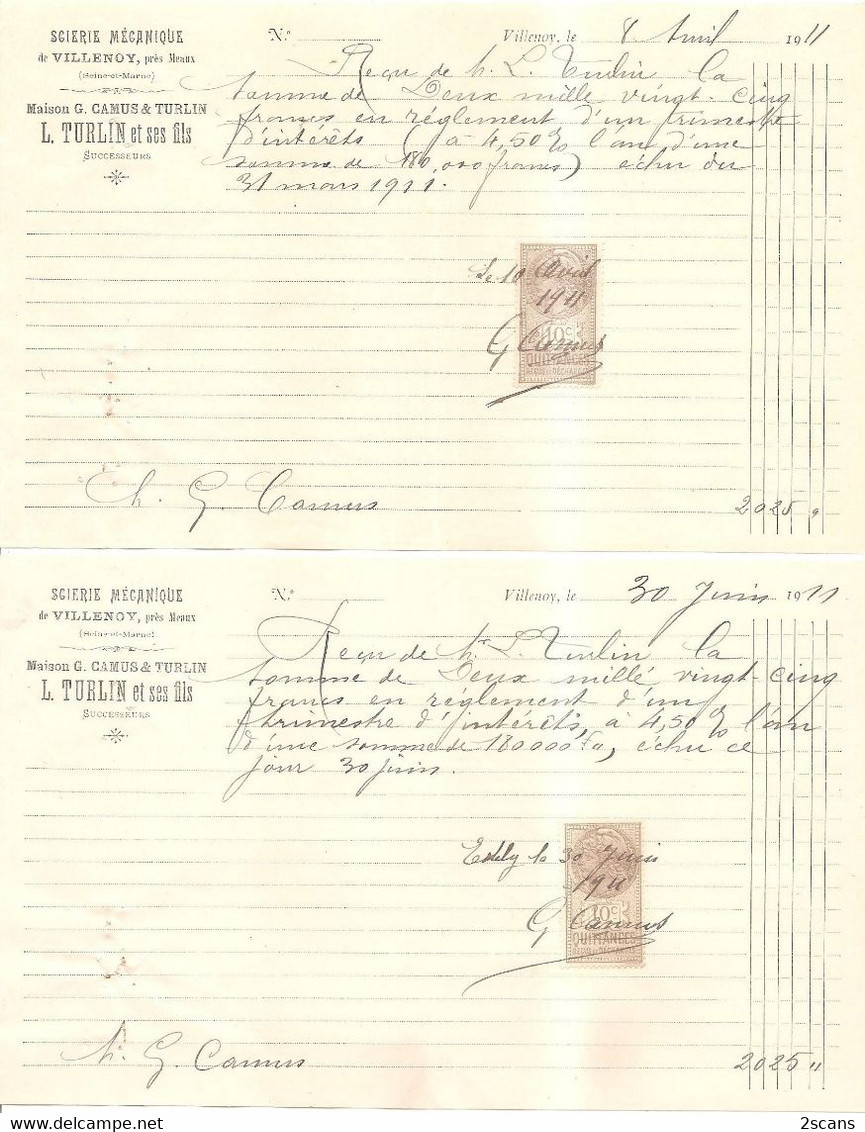 SCIERIE MÉCANIQUE
de VILLENOY, près Meaux
(Seine-et-Marne)
Maison G. CAMUS & TURLIN
L. TURLIN et ses fils
SUCCESSEURS
N.º
Villenoy, le 8 Avril 1911
Reçu de Mr L. Turlin la
somme de Deux mille vingt-cinq
francs en règlement d'un trimestre
d'intérêts (à 4,50% l'an d'une
somme de 180,000 francs) échu du
31 mars 1911.
Le 10 Avril
1911
10c
G Camus
QUITTANCES
REÇUS ET DÉCHARGES
Mr G. Camus
2025 "
SCIERIE MÉCANIQUE
de VILLENOY, près Meaux
(Seine-et-Marne)
Maison G. CAMUS & TURLIN
L. TURLIN et ses fils
SUCCESSEURS
N.º
Villenoy, le 30 Juin 1911
Reçu de Mr L. Turlin la
somme de Deux mille vingt-cinq
francs en règlement d'un
trimestre d'intérêts, à 4,50% l'an
d'une somme de 180000 fs, échu ce
jour 30 juin.
le 30 Juin
1911
10c
G Camus
QUITTANCES
REÇUS ET DÉCHARGES
Mr G. Camus
2025 "
2scans